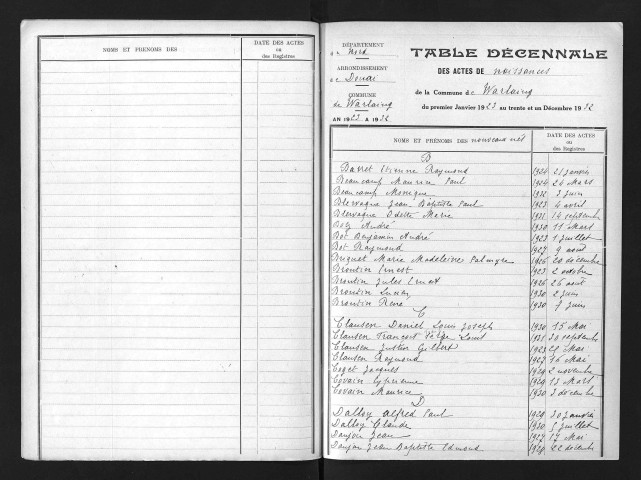 NOMS ET PRENOMS DES
DATE DES ACTES
ou
des Registres
DÉPARTEMENT
du Nord
ARRONDISSEMENT
de Douai
COMMUNE
de Warlaing
AN 1923 A 1932
TABLE DÉCENNALE
DES ACTES DE naissances
de la Commune de Warlaing
du premier Janvier 1923 au trente et un Décembre 1932
NOMS ET PRÉNOMS DES nouveaux nés
DATE DES ACTES
ou
des Registres
B
Barret Etienne Raymond 1924 21 janvier
Beaucamp Maurice Paul 1924 24 Mars
Beaucamp Monique 1932 3 juin
Blervaque Jean Baptiste Paul 1923 4 avril
Blervaque Odette Marie 1931 14 septembre
André 1930 11 Mars
Bot Benjamin André 1923 1 juillet
Bot Raymond 1927 9 août
Briquet Marie Madeleine Palmyre 1926 20 décembre
Broutin Ernest 1923 2 octobre
Broutin Jules Ernest 1926 26 août
Broutin Lucien 1930 2 juin
Broutin René 1930 7 juin
C
Clausen Daniel Louis Joseph 1930 15 Mai
Clausen François Louis 1931 30 septembre
Clausen Justin Gilbert 1923 28 Mai
Clausen Raymond 1927 16 Mai
Coget Jacques 1929 2 novembre
Covain Cyprienne 1929 13 Mars
Covain Maurice 1930 3 décembre
D
Dalloy Alfred Paul 1929 30 janvier
Dalloy Claude 1930 5 juillet
Danjou Jean 1927 17 Mai
Danjou Jean Baptiste Edmond 1928 22 décembre